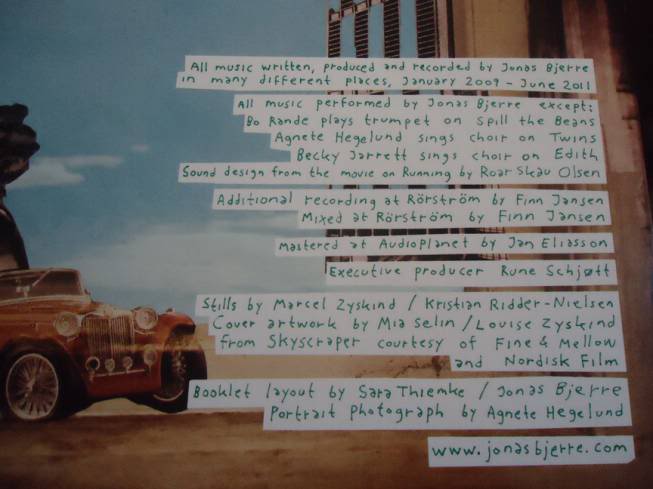 All music written, produced and recorded by Jonas Bjerre
in many different places, January 2009 - June 2011
All music performed by Jonas Bjerre except:
Bo Rande plays trumpet on Spill the Beans
Agnete Hegelund sings choir on Twins
Becky Jarrett sings choir on Edith
Sound design from the movie on Running by Roar Skau Olsen
Additional recording at Rörström by Finn Jansen
Mixed at Rörström by Finn Jansen
Mastered at Audioplanet by Jan Eliasson
Executive producer Rune Schjøtt
Stills by Marcel Zyskind / Kristian Ridder-Nielsen
Cover artwork by Mia Selin / Louise Zyskind
from Skyscraper courtesy of Fine & Mellow
and Nordisk Film
Booklet layout by Sara Thiemke / Jonas Bjerre
Portrait Photograph by Agnete Hegelund
www.jonasbjerre.com